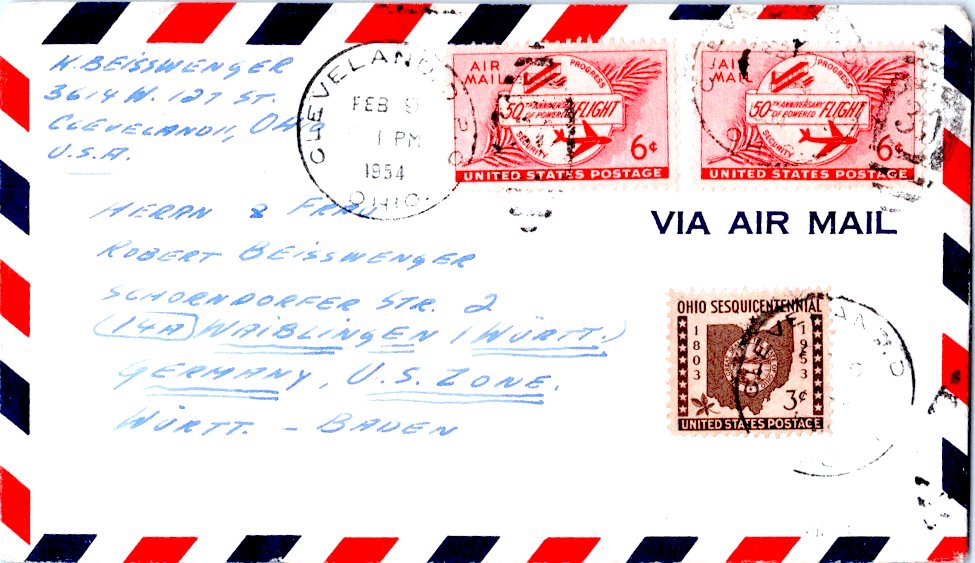 K. BEISSWENGER
3614 W. 127 ST.
CLEVELAND 11, OHIO
U.S.A.
CLEVELAND
FEB 9
1 PM
1954
OHIO
AIR MAIL
PROGRESS
50TH ANNIVERSARY OF POWERED FLIGHT
SECURITY
6¢
UNITED STATES POSTAGE
AIR MAIL
PROGRESS
50TH ANNIVERSARY OF POWERED FLIGHT
SECURITY
6¢
UNITED STATES POSTAGE
VIA AIR MAIL
HERRN & FRAU
ROBERT BEISSWENGER
SCHORNDORFER STR. 2
(14A) WAIBLINGEN (WÜRTT.)
GERMANY, U.S. ZONE.
WÜRTT. - BADEN
OHIO SESQUICENTENNIAL
1803
1953
3¢
UNITED STATES POSTAGE